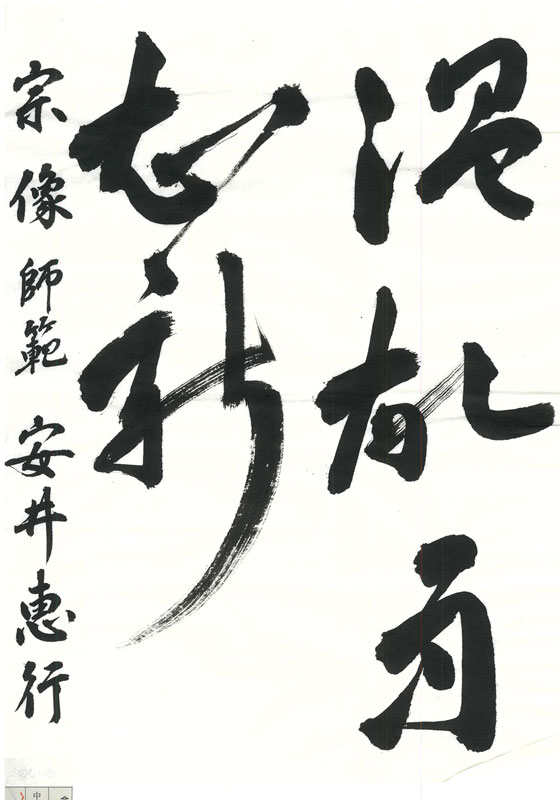 温故而
知新
宗像 師範 安井惠行
中